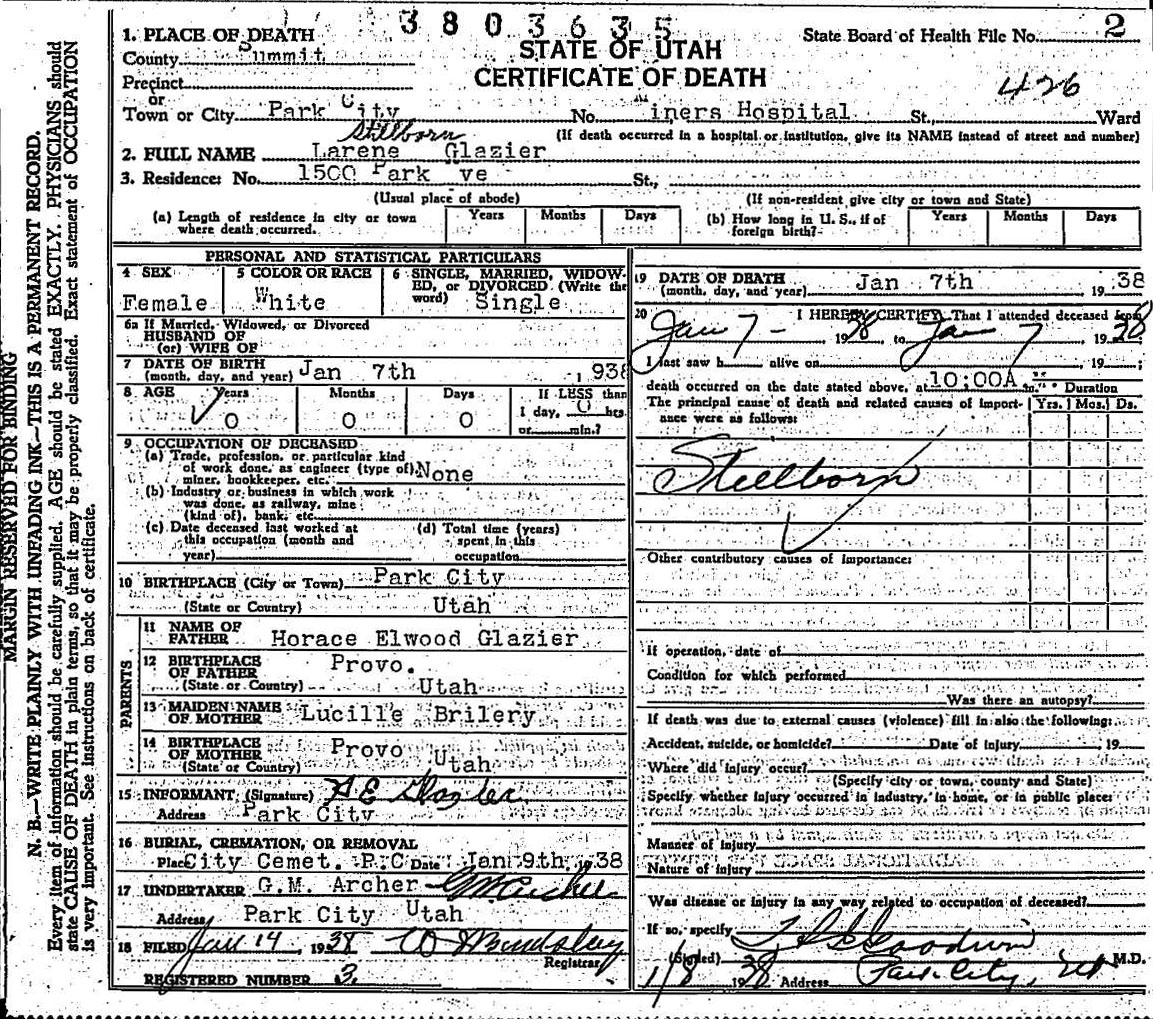 3803635
1. PLACE OF DEATH
STATE OF UTAH
CERTIFICATE OF DEATH
State Board of Health File No. 2
County Summit
426
Precinct
or
Town or City Park City No. Miners Hospital St., Ward
(If death occurred in a hospital or institution, give its NAME instead of street and number)
Stillborn
2. FULL NAME Larene Glazier
3. Residence: No. 1500 Park ve St.,
(Usual place of abode) (If non-resident give city or town and State)
(a) Length of residence in city or town where death occurred. Years Months Days
(b) How long in U. S., if of foreign birth? Years Months Days
PERSONAL AND STATISTICAL PARTICULARS
4 SEX Female
5 COLOR OR RACE White
6 SINGLE, MARRIED, WIDOWED, or DIVORCED (Write the word) Single
6a If Married, Widowed, or Divorced
HUSBAND OF
(or) WIFE OF
7 DATE OF BIRTH
(month, day, and year) Jan 7th 1938
8 AGE Years Months Days If LESS than
0 0 0 1 day, 0 hrs.
or min.?
9 OCCUPATION OF DECEASED
(a) Trade, profession, or particular kind
of work done, as engineer (type of), None
miner, bookkeeper, etc.
(b) Industry or business in which work
was done, as railway, mine
(kind of), bank, etc.
(c) Date deceased last worked at this occupation (month and year)
(d) Total time (years) spent in this occupation
10 BIRTHPLACE (City or Town) Park City
(State or Country) Utah
PARENTS
11 NAME OF FATHER Horace Elwood Glazier
12 BIRTHPLACE OF FATHER Provo.
(State or Country) Utah
13 MAIDEN NAME OF MOTHER Lucille Brilery
14 BIRTHPLACE OF MOTHER Provo
(State or Country) Utah
15 INFORMANT (Signature) H E Glazier
Address Park City
16 BURIAL, CREMATION, OR REMOVAL
Place City Cemet. P.C Date Jan 9th 1938
17 UNDERTAKER G.M. Archer GM Archer
Address Park City Utah
18 FILED Jan 14 1938
Registrar
REGISTERED NUMBER 3.
19 DATE OF DEATH
(month, day, and year) Jan 7th 19 38
20 I HEREBY CERTIFY, That I attended deceased from
Jan 7 - 1938 to Jan 7, 1938
I last saw h alive on , 19 ;
death occurred on the date stated above, at 10:00A m. Duration
The principal cause of death and related causes of importance were as follows: Yrs. Mos. Ds.
Stillborn
Other contributory causes of importance:
If operation, date of
Condition for which performed
Was there an autopsy?
If death was due to external causes (violence) fill in also the following:
Accident, suicide, or homicide? Date of injury 19
Where did injury occur?
(Specify city or town, county and State)
Specify whether injury occurred in industry, in home, or in public place:
Manner of injury
Nature of injury
Was disease or injury in any way related to occupation of deceased?
If so, specify
(Signed) Goodwin M.D.
1/8 1938 Address Park City, Ut
MARGIN RESERVED FOR BINDING
N. B.—WRITE PLAINLY WITH UNFADING INK—THIS IS A PERMANENT RECORD.
Every item of information should be carefully supplied. AGE should be stated EXACTLY. PHYSICIANS should
state CAUSE OF DEATH in plain terms, so that it may be properly classified. Exact statement of OCCUPATION
is very important. See instructions on back of certificate.